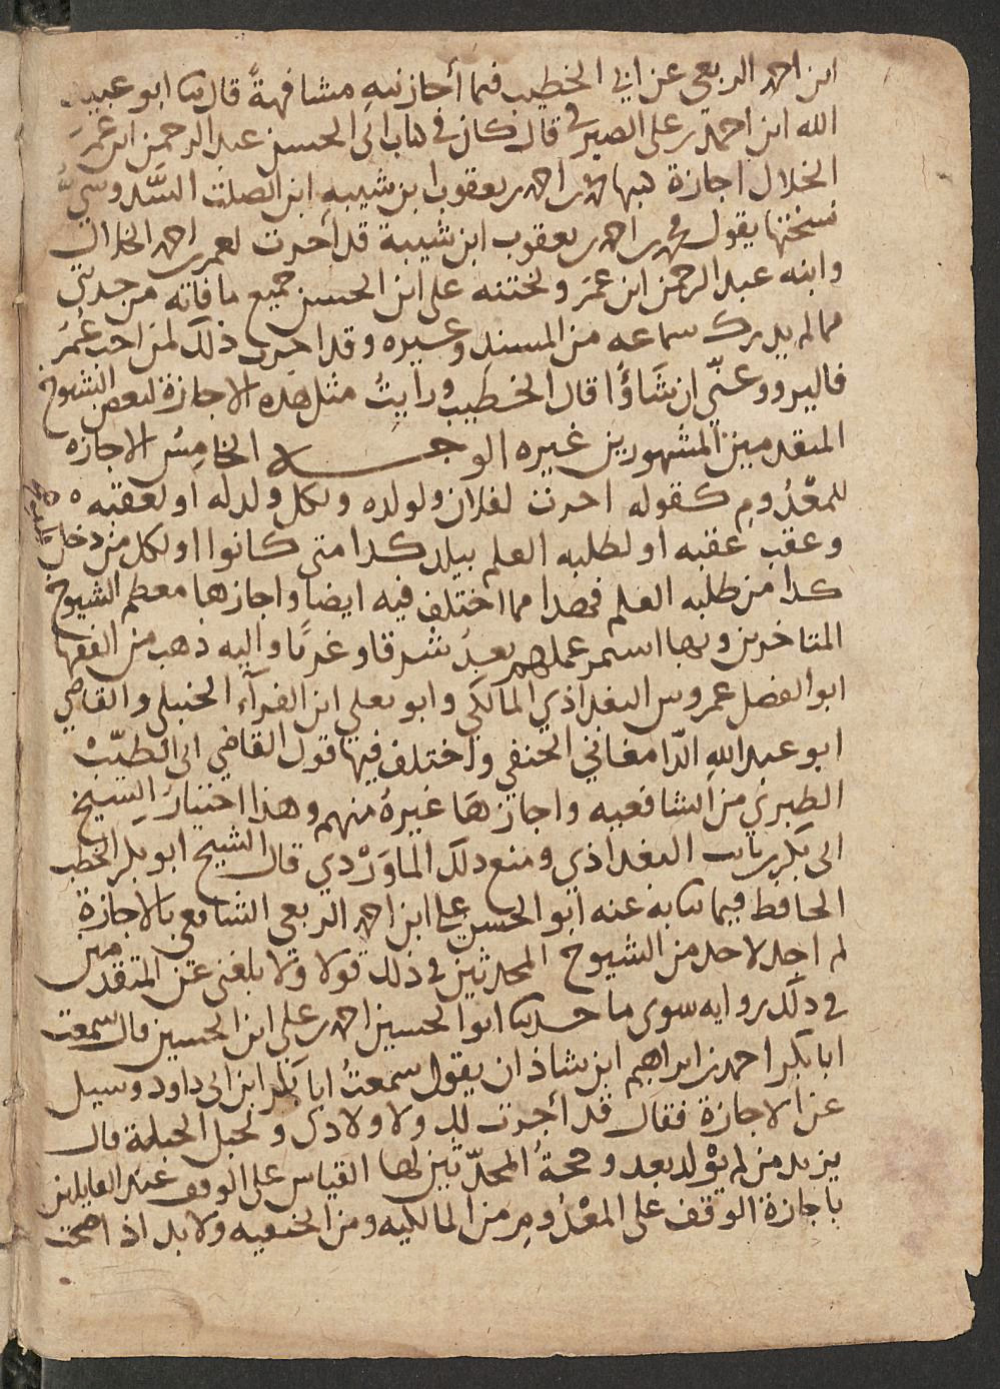 ابن احمد الربعي عن ابي الخطيب فيما أجازنيه مشافهةً قال ثنا ابو عبيد
الله ابن احمد بن علي الصيرفي قال كان في كتاب ابي الحسين عبد الرحمن ابن عمر
الخلال اجازة كتبها محمد بن احمد بن يعقوب ابن شيبه ابن الصلت السَّدوسيُّ
نسختها يقول محمد بن احمد بن يعقوب ابن شيبة قد أجزت لعمر بن احمد الخلال
وابنه عبد الرحمن ابن عمَرَ ولختنه علي ابن الحسن جميع ما فاته من حديثي
مما لم يدرك سماعه من المسند وغيره وقد اجزت ذلك لمن احب عُمَرُ
فاليرووه عنّي ان شَاؤُا قال الخطيب ورايتُ مثل هذه الاجازة لبعض الشيوخ
المتقدمين المشهورين غيره الوجه الخامِسُ الاجازه
للمعْدُومِ كقوله اجزت لفلان ولولده ولكل ولد له او لعقبه
وعقب عقبه او لطلبه العلم ببلد كذا متى كانوا او لكل من دخل
كذا من طلبه العلم فهذا مما اختلف فيه ايضا واجازها معظم الشيوخ
المتاخرين وبها استمر عملهم بعدُ شرقا وغربًا واليه ذهب من الفقها
ابو الفضل عمروس البغداذي المالكي وابو يعلي ابن الفرآء الحنبلي والقاضي
ابو عبد الله الدّامغاني الحنفي واختلف فيها قول القاضي ابي الطيّبْ
الطبري من الشافعيه واجازهَا غيرهُ منهم وهذا اختيارُ الشيخ
ابي بكر بن ثابت البغداذي ومنع ذلك المَاوَرْدي قال الشيخ ابو بكر الخطيب
الحافظ فيما ثنا به عنه ابو الحسن علي ابن احمد الربعي الشافعي بالاجازة
لم اجد لاحد من الشيوخ المحدثين في ذلك قولا ولا بلغني عن المتقدمين
في ذلك روايه سوى ما حدثنا ابو الحسين احمد بن علي ابن الحسين قال سمعت
ابا بكر احمد بن ابراهيم ابن شاذان يقول سمعتُ ابا بكر ابن ابي داود وسيل
عن الاجازة فقال قد أجزت لك ولاولادك ولحبل الحبلة قال
يريد من لم يُولد بعد وحجةُ المحدّثين لها القياس على الوقف عند القايلين
باجازة الوقف على المعْدُومِ من المالكيه ومن الحنفيه ولابد اذ اصحت